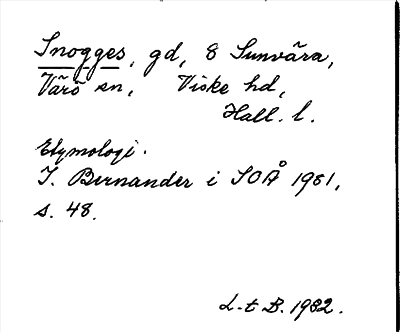 Snogges, gd, 8 Sunvära,
Värö sn, Viske hd,
Hall. l.
Etymologi.
I. Bernander i SOÅ 1981,
s. 48.
L-t B. 1982.